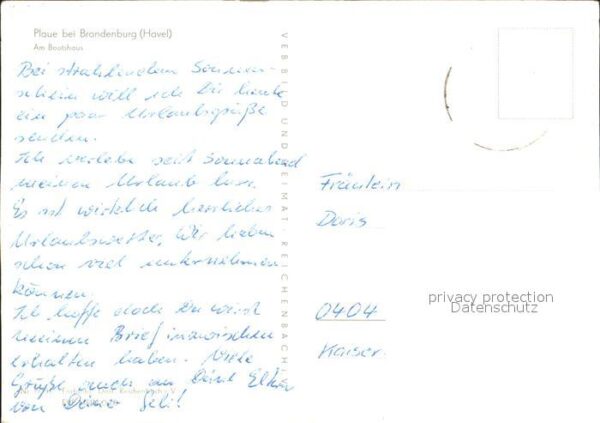 Plaue bei Brandenburg (Havel)
Am Bootshaus
Bei strahlendem Sonnen-
schein will ich Dir heute
ein paar Urlaubsgrüße
senden.
Ich verlebe seit Sonnabend
meinen Urlaub hier.
Es ist wirklich herrliches
Urlaubswetter, wir haben
schon viel unternehmen
können.
Ich hoffe doch Du wirst
meinen Brief inzwischen
erhalten haben. Viele
Grüße auch an Deine
von Deiner
VEB BILD UND HEIMAT REICHENBACH
Fräulein
Doris
0404
Kaiser
privacy protection
Datenschutz